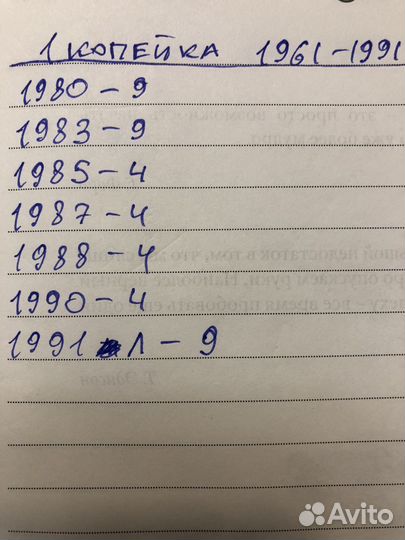 1 КОПЕЙКА 1961-1991
1980 - 9
1983 - 9
1985 - 4
1987 - 4
1988 - 4
1990 - 4
1991 Л - 9
Avito